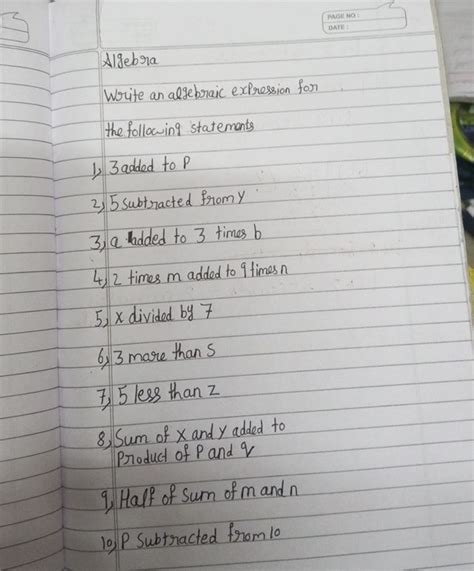 PAGE NO :
DATE :
Algebra
Write an algebraic expression for
the following statements
1) 3 added to P
2) 5 subtracted from y
3) a added to 3 times b
4) 2 times m added to 9 times n
5) x divided by 7
6) 3 more than S
7) 5 less than Z
8) Sum of x and y added to
Product of P and q
9) Half of sum of m and n
10) P Subtracted from 10